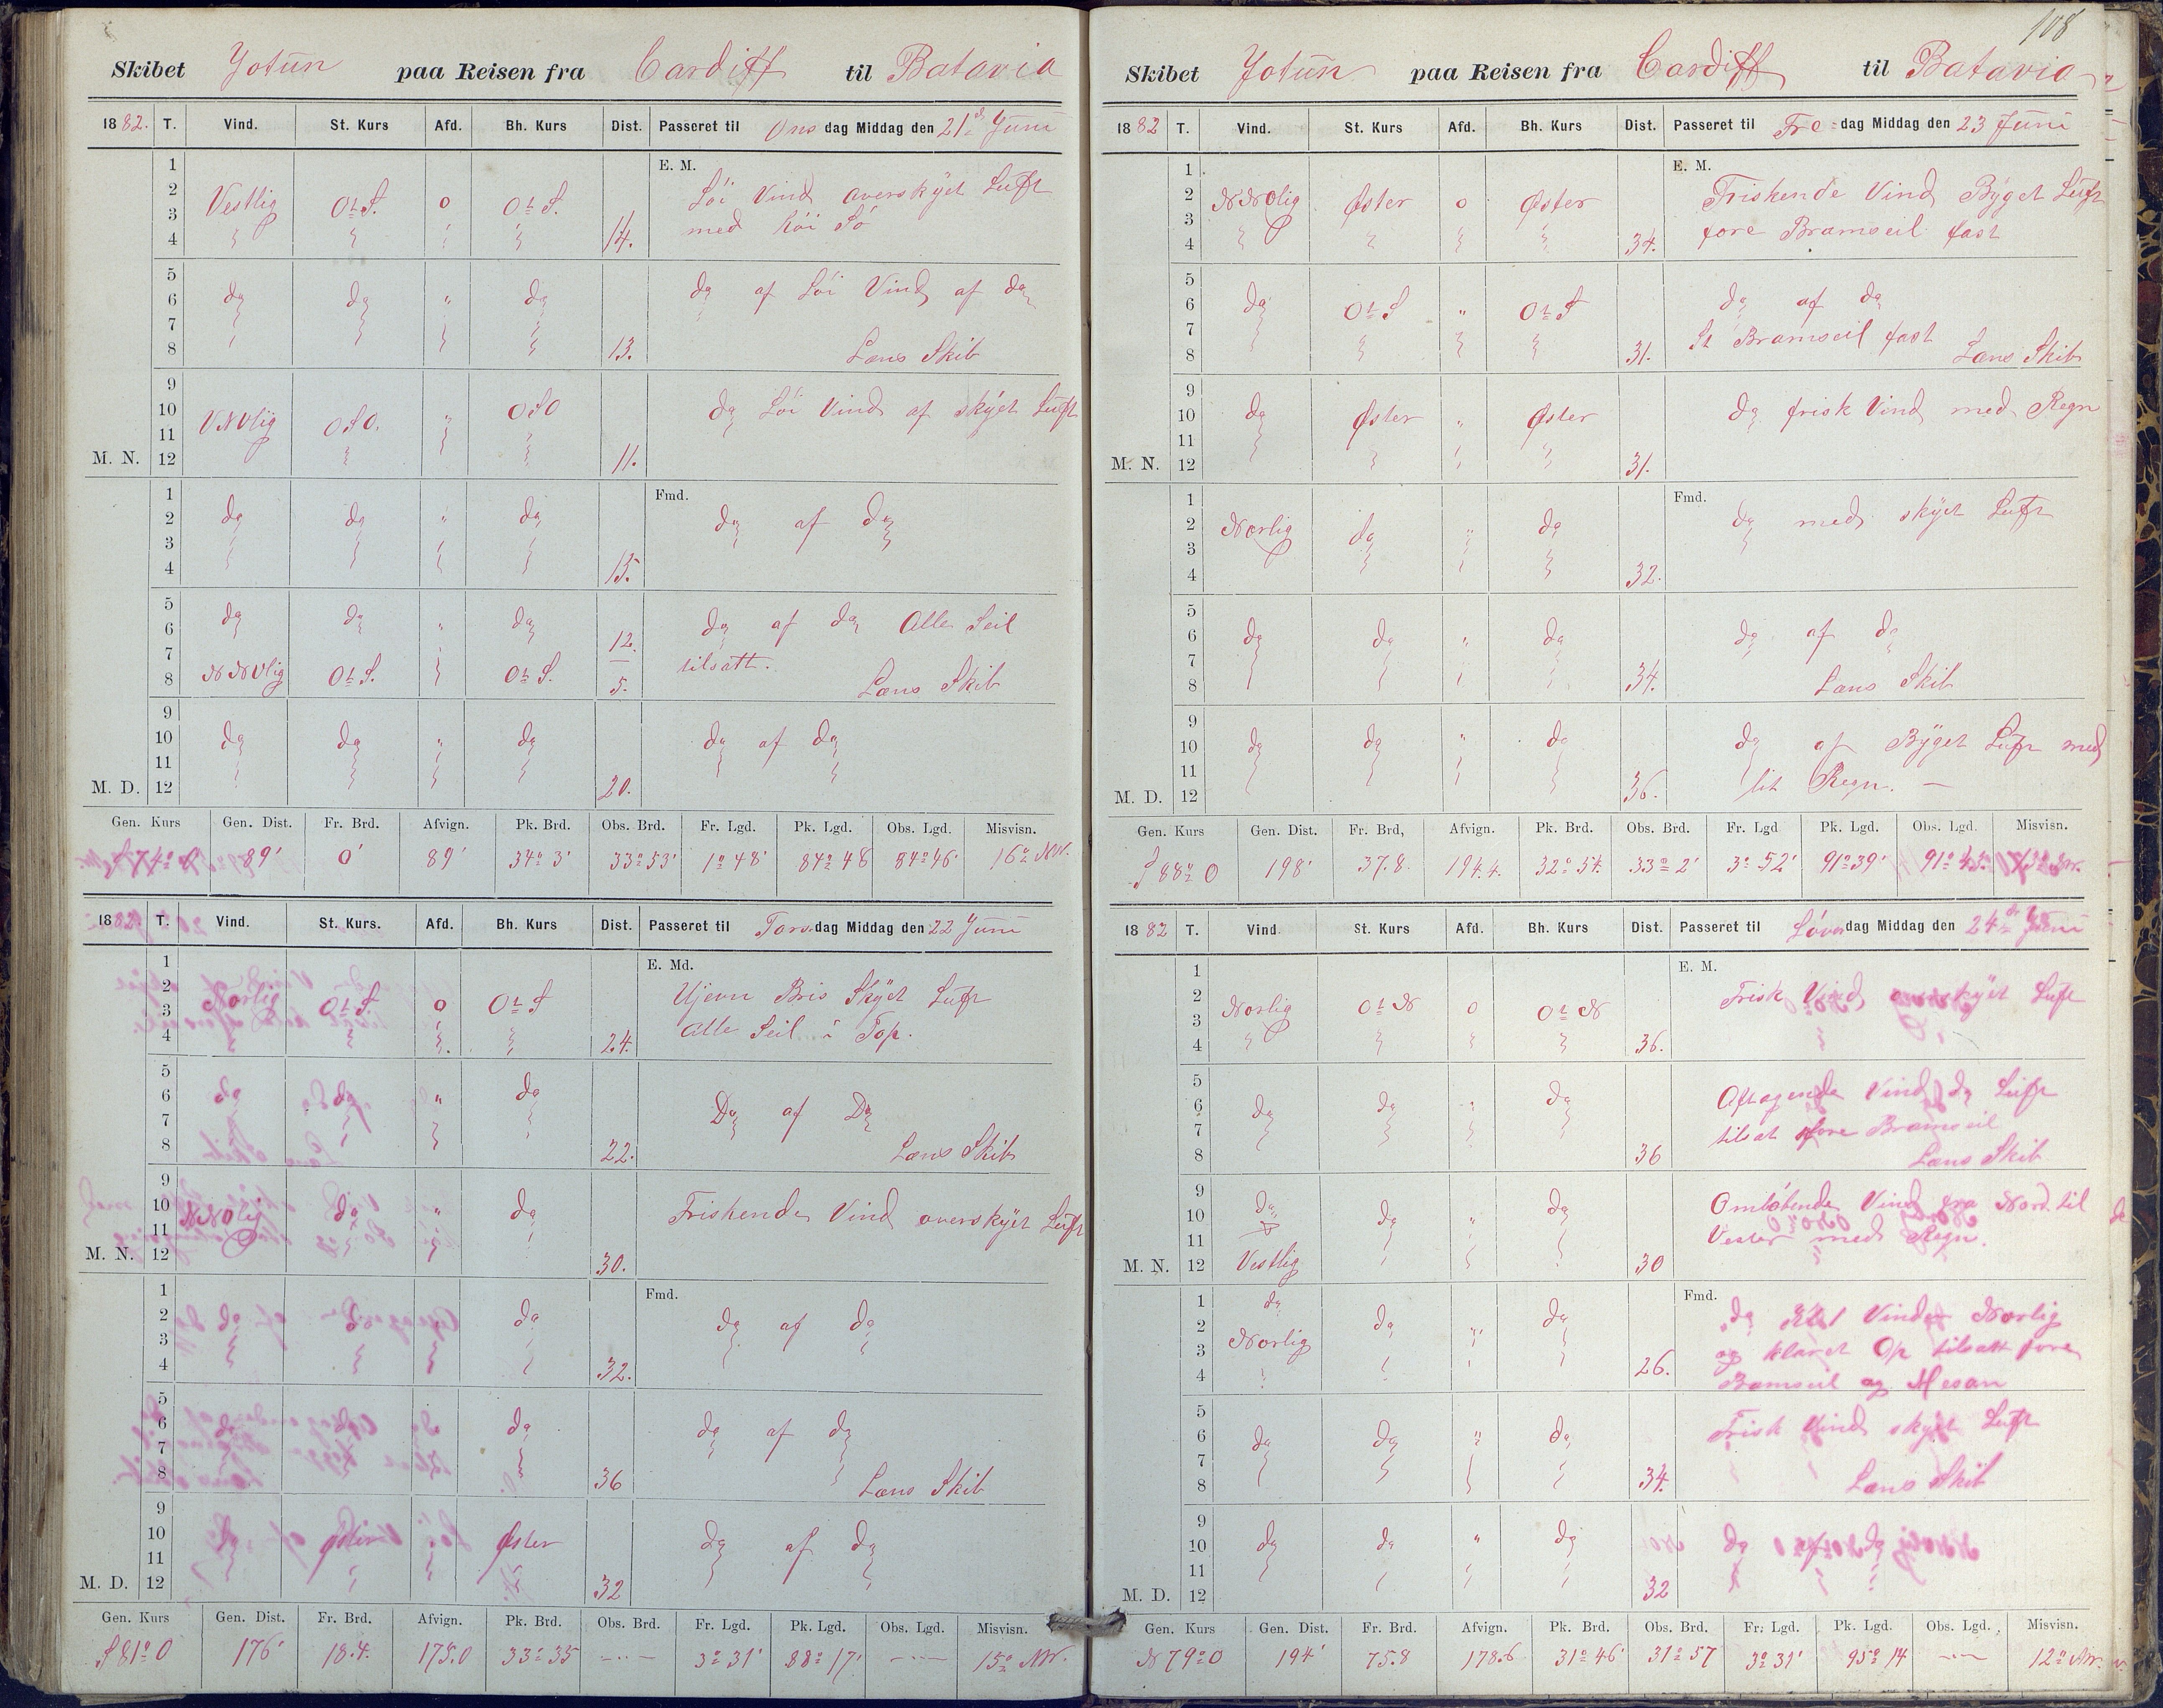 Skibet Jotun paa Reisen fra Cardiff til Batavia
1882. T. Vind. St. Kurs Afd. Bh. Kurs Dist. Passeret til Onsdag Middag den 21d Juni
1 E. M.
2 Vestlig OtS. o OtS. Löi Vind overskyet Luft
3 med höi Sö
4 14.
5
6 do do " do do af Löi Vind af do
7
8 13. Læns Skib
9
10 VNVlig OSO. " OSO do Löi Vind af skyet Luft
11
M. N. 12 11.
1 Fmd.
2 do do " do do af do
3
4 15.
5
6 do do " do 12. do af do Alle Seil
7 tilsatt.
8 NNVlig OtS. OtS. 5. Læns Skib
9
10 do do " do do af do
11
M. D. 12 20.
Gen. Kurs Gen. Dist. Fr. Brd. Afvign. Pk. Brd. Obs. Brd. Fr. Lgd. Pk. Lgd. Obs. Lgd. Misvisn.
89' 0' 89' 34° 3' 33° 53' 1° 48' 84° 48 84° 46' 16° NW.
1882. T. Vind. St. Kurs. Afd. Bh. Kurs Dist. Passeret til Torsdag Middag den 22 Juni
1 E. Md.
2 Norlig OtS. o OtS Ujevn Bris Skyet Luft
3 alle Seil i Top.
4 24.
5
6 do do " do Do af Do
7
8 22. Læns Skib
9
10 NNOlig do " do Friskende Vind overskyet Luft
11
M. N. 12 30.
1 Fmd.
2 do do do do af do
3
4 32.
5
6 do do do do af do
7
8 36 Læns Skib
9
10 do Øster Øster do af do
11
M. D. 12 32
Gen. Kurs Gen. Dist. Fr. Brd. Afvign. Pk. Brd. Obs. Brd. Fr. Lgd. Pk. Lgd. Obs. Lgd. Misvisn.
S 81° O 176' 18.4. 175.0 33° 35 3° 31' 88° 17' 15° NW.
108
Skibet Jotun paa Reisen fra Cardiff til Batavia
1882 T. Vind. St. Kurs Afd. Bh. Kurs Dist. Passeret til Fredag Middag den 23 Juni
1 E. M.
2 NNOlig Øster o Øster Friskende Vind Byget Luft
3 fore Bramseil fast
4 34.
5
6 do OtS " OtS do af do
7 St Bramseil fast
8 31. Læns Skib
9
10 do Øster " Øster do frisk Vind med Regn
11
M. N. 12 31.
1 Fmd.
2 Norlig do " do do med skyet Luft
3
4 32.
5
6 do do " do do af do
7
8 34. Læns Skib
9
10 do do " do do af Byget Luft med
11 lit Regn.
M. D. 12 36.
Gen. Kurs Gen. Dist. Fr. Brd, Afvign. Pk. Brd. Obs. Brd. Fr. Lgd Pk. Lgd. Obs. Lgd. Misvisn.
S 88° O 198' 37.8. 194.4. 32° 54. 33° 2' 3° 52' 91° 39' 91° 13° NW.
1882 T. Vind. St. Kurs Afd. Bh. Kurs Dist. Passeret til Löverdag Middag den 24de Juni
1 E. M.
2 Norlig OtN o OtN Frisk Vind overskyet Luft
3
4 36.
5
6 do do " do Aftagende Vind do Luft
7 tilsat fore Bramseil
8 36 Læns Skib
9
10 do do " do Omlöbende Vind fra Nord til
11 Vester med Regn.
M. N. 12 Vestlig 30
1 do Fmd.
2 Norlig do " do do Vinden Norlig
3 og klaret Op tilsatt fore
4 26. Bramseil og Mesan
5
6 do do " do Frisk Vind skyet Luft
7
8 34. Læns Skib
9
10 do do " do do af do
11
M. D. 12 32
Gen. Kurs Gen. Dist. Fr. Brd. Afvign. Pk. Brd. Obs. Brd. Fr. Lgd. Pk. Lgd. Obs. Lgd. Misvisn.
N 79° O 194' 75.8 178.6 31° 46' 31° 57 3° 31' 95° 14 12° NW.